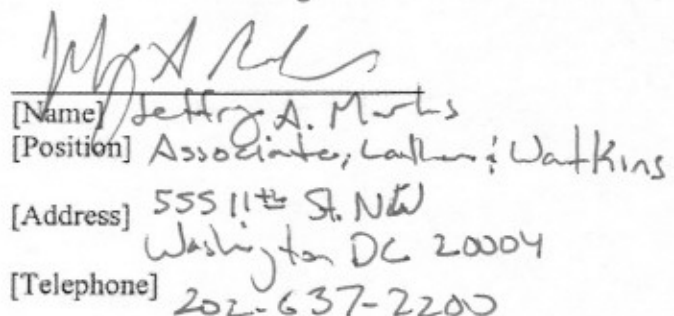 [Name] Jeffry A. Marks
[Position] Associate, Latham & Watkins
[Address] 555 11th St. NW
Washington DC 20004
[Telephone] 202-637-2200